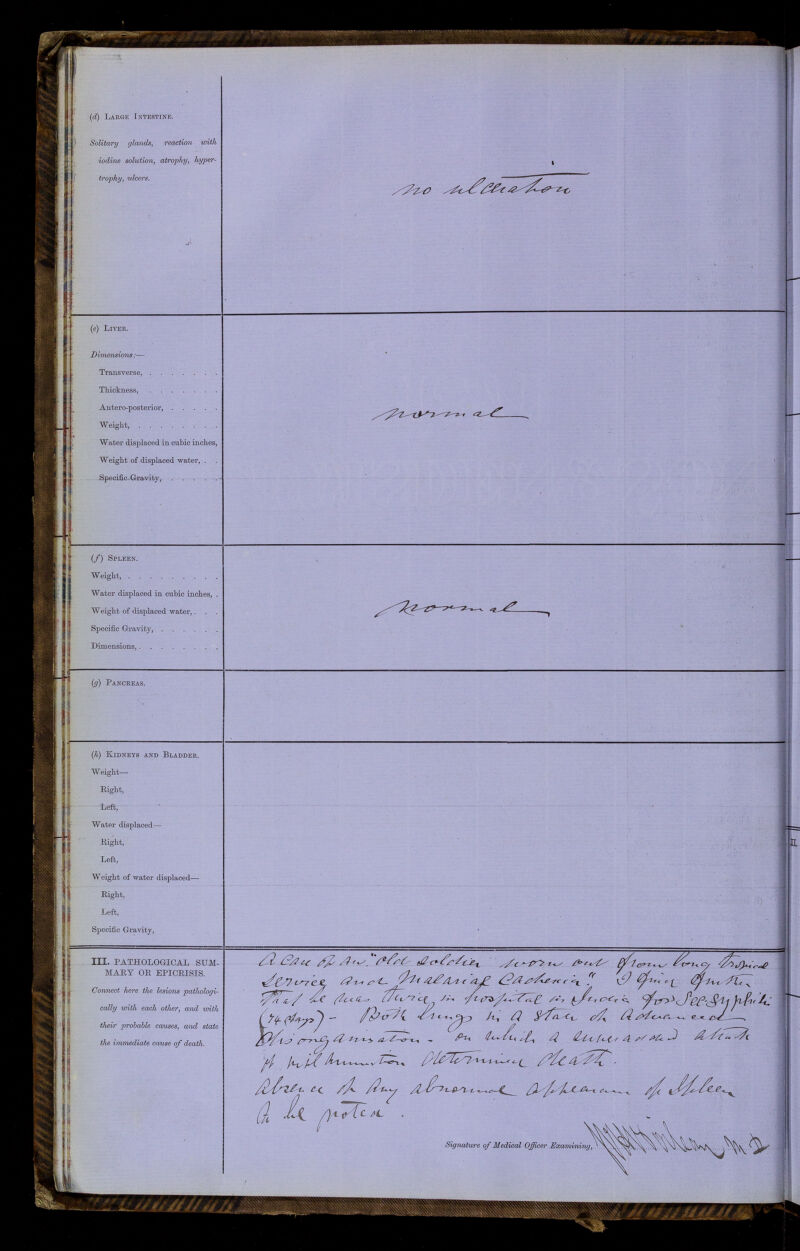 (d) LARGE INTESTINE.
Solitary glands, reaction with
iodine solution, atrophy, hyper-
trophy, ulcers.
no ulceration
(e) LIVER.
Dimensions:—
Transverse, . . . . . . .
Thickness, . . . . . . .
Antero-posterior, . . . . .
Weight, . . . . . . . .
Water displaced in cubic inches,
Weight of displaced water, . .
Specific Gravity, . . . . . .
normal
(f) SPLEEN.
Weight, . . . . . . . . .
Water displaced in cubic inches, .
Weight of displaced water, . . .
Specific Gravity, . . . . . .
Dimensions, . . . . . . . .
normal
(g) PANCREAS.
(h) KIDNEYS AND BLADDER.
Weight—
Right,
Left,
Water displaced—
Right,
Left,
Weight of water displaced—
Right,
Left,
Specific Gravity,
III. PATHOLOGICAL SUM-
MARY OR EPICRISIS.
Connect here the lesions pathologi-
cally with each other, and with
their probable causes, and state
the immediate cause of death.
A Case of an "old soldier worn out from long tropical
service and Malarial Cachexia." I find further
that he was twice in hospital in India for Sec: Syphilis
(74 days) - Both lungs in a state of advanced
disorganisation - on which a superadded attack
of inflammation determined death.
Absence of any abnormal appearance of Spleen
to be noted.
Signature of Medical Officer Examining,
M D
II.